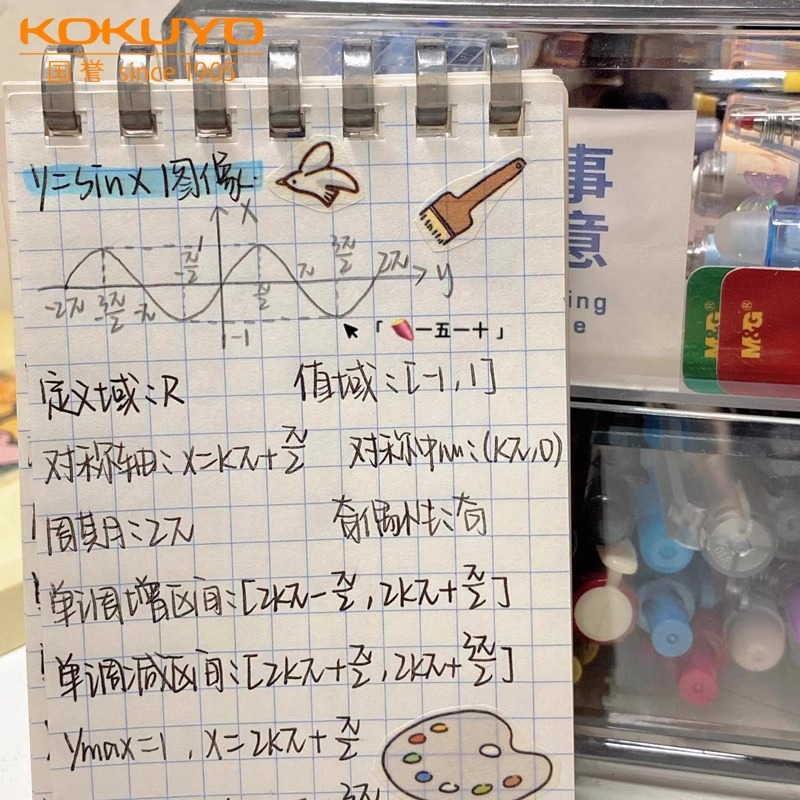 KOKUYO
国誉 since 1905
y=sinx图像
x
1
-π/2
3π/2
-2π
-3π/2
-π
π/2
π
2π
y
-1
「一五一十」
定义域:R 值域:[-1,1]
对称轴:x=kπ+π/2 对称中心:(kπ,0)
周期:2π 奇偶性:奇
单调增区间:[2kπ-π/2,2kπ+π/2]
单调减区间:[2kπ+π/2,2kπ+3π/2]
ymax=1,x=2kπ+π/2
3π
事
意
ing
e
M&G
M&G